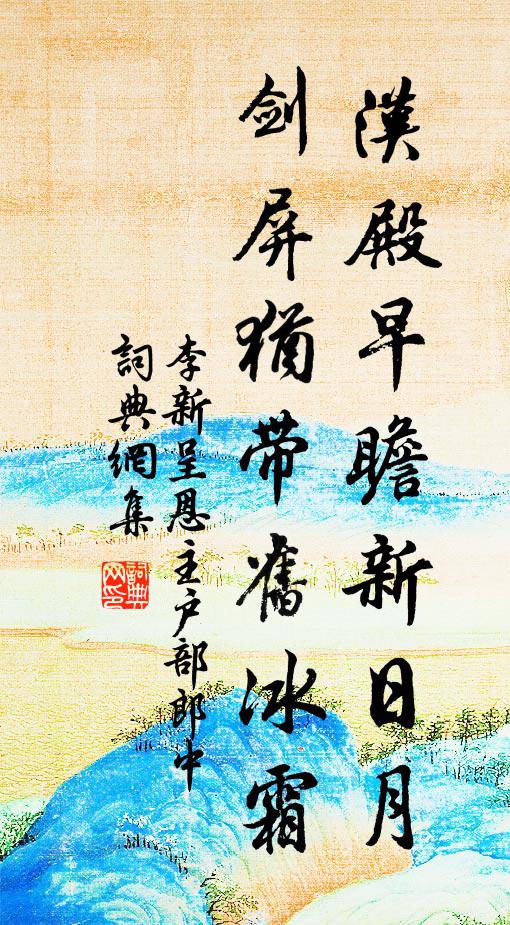 漢殿早瞻新日月
劍屏猶带舊冰霜
李新呈恩主户部郎中
詞典網集
詞典网印